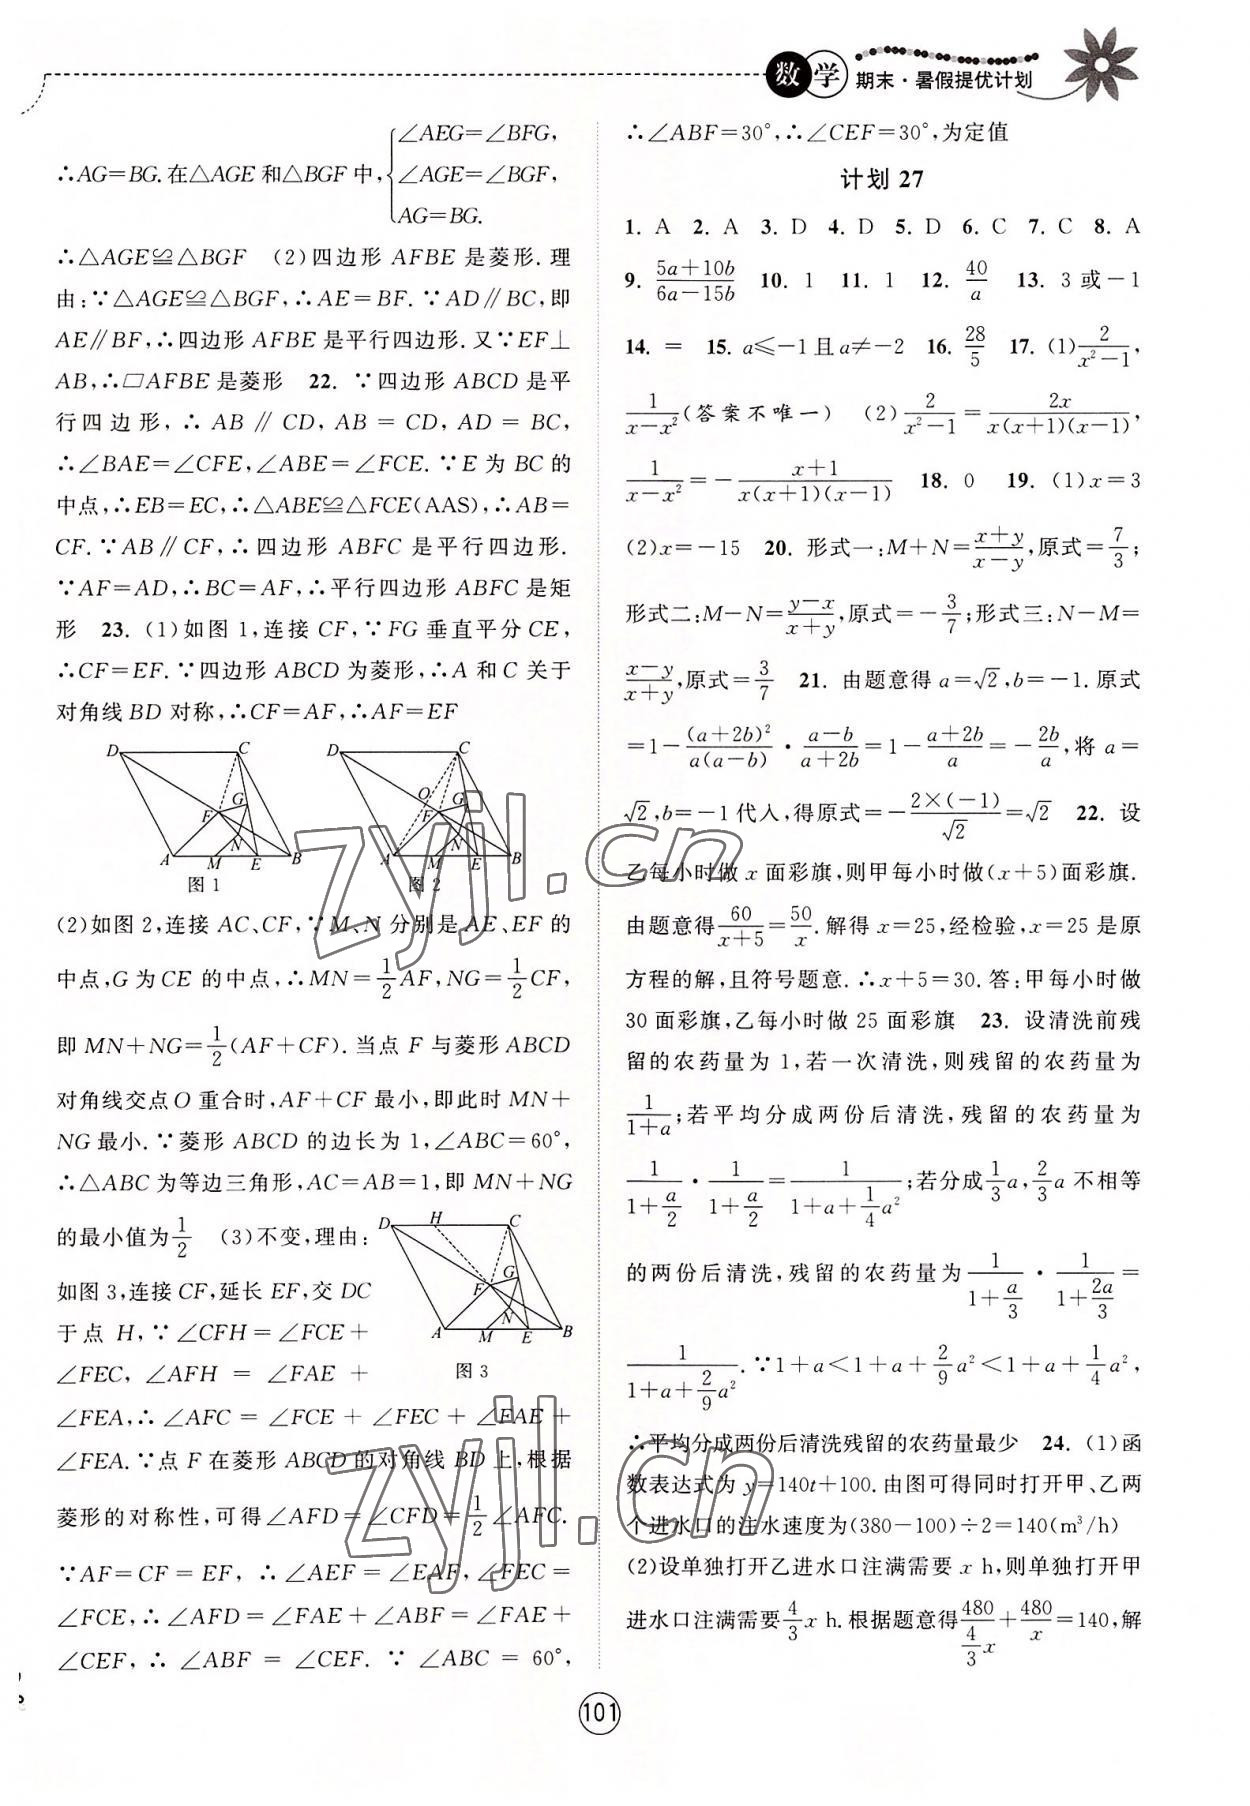 数学 期末·暑假提优计划
∴AG=BG.在△AGE和△BGF中,{∠AEG=∠BFG,
∠AGE=∠BGF,
AG=BG.
∴△AGE≌△BGF (2)四边形 AFBE 是菱形.理
由:∵△AGE≌△BGF,∴AE=BF.∵AD∥BC,即
AE∥BF,∴四边形 AFBE 是平行四边形.又∵EF⊥
AB,∴▱AFBE 是菱形 22. ∵四边形 ABCD 是平
行四边形,∴ AB ∥ CD, AB = CD, AD = BC,
∴∠BAE=∠CFE,∠ABE=∠FCE.∵E 为 BC 的
中点,∴EB=EC,∴△ABE≌△FCE(AAS),∴AB=
CF.∵AB∥CF,∴四边形 ABFC 是平行四边形.
∵AF=AD,∴BC=AF,∴平行四边形 ABFC 是矩
形 23. (1)如图1,连接 CF,∵FG 垂直平分 CE,
∴CF=EF.∵四边形 ABCD 为菱形,∴A 和 C 关于
对角线 BD 对称,∴CF=AF,∴AF=EF
D C G F A M N E B
图1
D C O G F N A M E B
图2
(2)如图2,连接 AC、CF,∵M、N 分别是 AE、EF 的
中点,G 为 CE 的中点,∴MN=1/2 AF,NG=1/2 CF,
即 MN+NG=1/2(AF+CF).当点 F 与菱形 ABCD
对角线交点 O 重合时,AF+CF 最小,即此时 MN+
NG 最小.∵菱形 ABCD 的边长为1,∠ABC=60°,
∴△ABC 为等边三角形,AC=AB=1,即 MN+NG
的最小值为1/2 (3)不变,理由:
如图3,连接 CF,延长 EF,交 DC
于点 H,∵∠CFH=∠FCE+
∠FEC, ∠AFH = ∠FAE +
D H C G F N A M E B
图3
∠FEA,∴∠AFC = ∠FCE + ∠FEC + ∠FAE +
∠FEA.∵点 F 在菱形 ABCD 的对角线 BD 上,根据
菱形的对称性,可得∠AFD=∠CFD=1/2∠AFC.
∵AF=CF=EF, ∴∠AEF=∠EAF,∠FEC=
∠FCE,∴∠AFD=∠FAE+∠ABF=∠FAE+
∠CEF,∴ ∠ABF = ∠CEF. ∵ ∠ABC = 60°,
∴∠ABF=30°,∴∠CEF=30°,为定值
计划 27
1. A 2. A 3. D 4. D 5. D 6. C 7. C 8. A
9. (5a+10b)/(6a-15b) 10. 1 11. 1 12. 40/a 13. 3或-1
14. = 15. a≤-1且a≠-2 16. 28/5 17. (1)2/(x²-1),
1/(x-x²)(答案不唯一) (2)2/(x²-1)=2x/(x(x+1)(x-1)),
1/(x-x²)=-(x+1)/(x(x+1)(x-1)) 18. 0 19. (1)x=3
(2)x=-15 20. 形式一:M+N=(x+y)/(x-y),原式=7/3;
形式二:M-N=(y-x)/(x+y),原式=-3/7;形式三:N-M=
(x-y)/(x+y),原式=3/7 21. 由题意得 a=√2,b=-1.原式
=1-(a+2b)²/(a(a-b))·(a-b)/(a+2b)=1-(a+2b)/a=-2b/a,将 a=
√2,b=-1代入,得原式=-(2×(-1))/√2=√2 22. 设
乙每小时做 x 面彩旗,则甲每小时做(x+5)面彩旗.
由题意得60/(x+5)=50/x.解得 x=25,经检验,x=25 是原
方程的解,且符号题意.∴x+5=30.答:甲每小时做
30 面彩旗,乙每小时做 25 面彩旗 23. 设清洗前残
留的农药量为1,若一次清洗,则残留的农药量为
1/(1+a);若平均分成两份后清洗,残留的农药量为
1/(1+a/2)·1/(1+a/2)=1/(1+a+1/4 a²);若分成1/3 a,2/3 a 不相等
的两份后清洗,残留的农药量为1/(1+a/3)·1/(1+2a/3)=
1/(1+a+2/9 a²).∵1+a<1+a+2/9 a²<1+a+1/4 a²,
∴平均分成两份后清洗残留的农药量最少 24. (1)函
数表达式为 y=140t+100.由图可得同时打开甲、乙两
个进水口的注水速度为(380-100)÷2=140(m³/h)
(2)设单独打开乙进水口注满需要 x h,则单独打开甲
进水口注满需要4/3 x h.根据题意得480/(4/3 x)+480/x=140,解
101
zyjl.cn
zyjl.cn